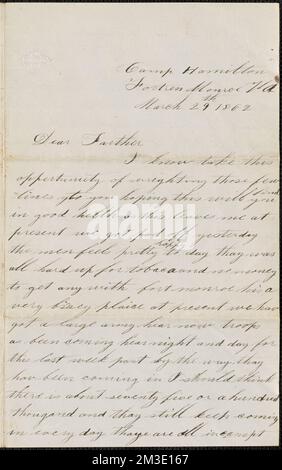 Camp Hamilton
Fortres Monroe VA
March 29th 1862
Dear Farther
I know take this
opportunity of wrighting those few
lines to you hoping this will find you
in good helth as this leaves me at
present we got paid of yesterday
the men feel pretty to day thay was
all hard up for tobaca and no money
to get any with fort monroe his a
very bisey plaice at present we have
got a large army hear now troop
as been coming hear night and day for
this last week past by the way thay
have been coming in I should think
there is about seventy five or a hundred
thougand and thay still keep coming
in every day thaye are all in campt
alamy
Image ID: 2M3E167
www.alamy.com